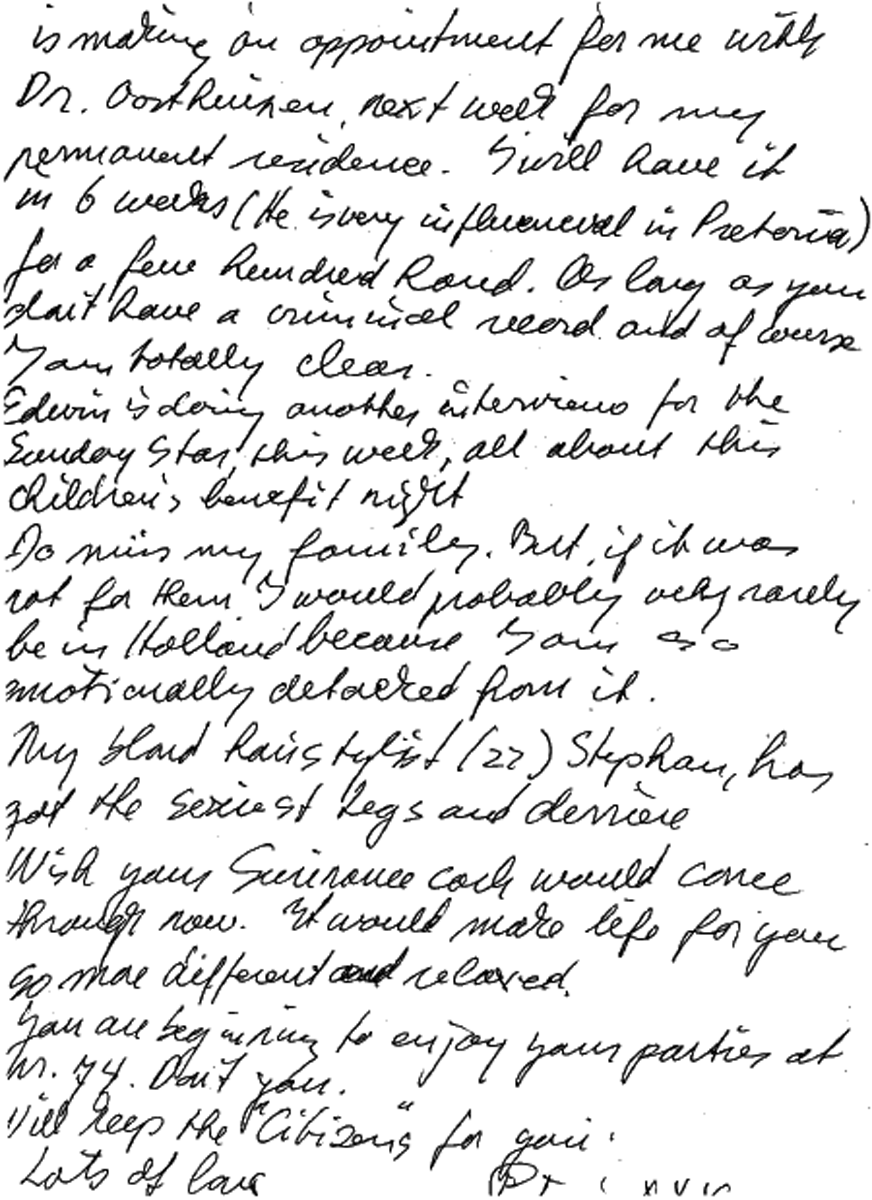 is making an appointment for me with
Dr. Oosthuizen, next week for my
permanent residence. I will have it
in 6 weeks (He is very influencial in Pretoria)
for a few hundred Rand. As long as you
don't have a criminal record and of course
I am totally clear.
Edwin is doing another interview for the
Sunday Star, this week, all about this
children's benefit night
Do miss my family. But, if it was
not for them I would probably very rarely
be in Holland because I am so
emotionally detached from it.
My blond hairstylist (22) Stephan, has
got the sexiest legs and derrière
Wish your Suriname cash would come
through now. It would make life for you
so more different and relaxed.
You are beginning to enjoy your parties at
nr. 74. Don't you.
I'll keep the "Citizens" for you.
Lots of love